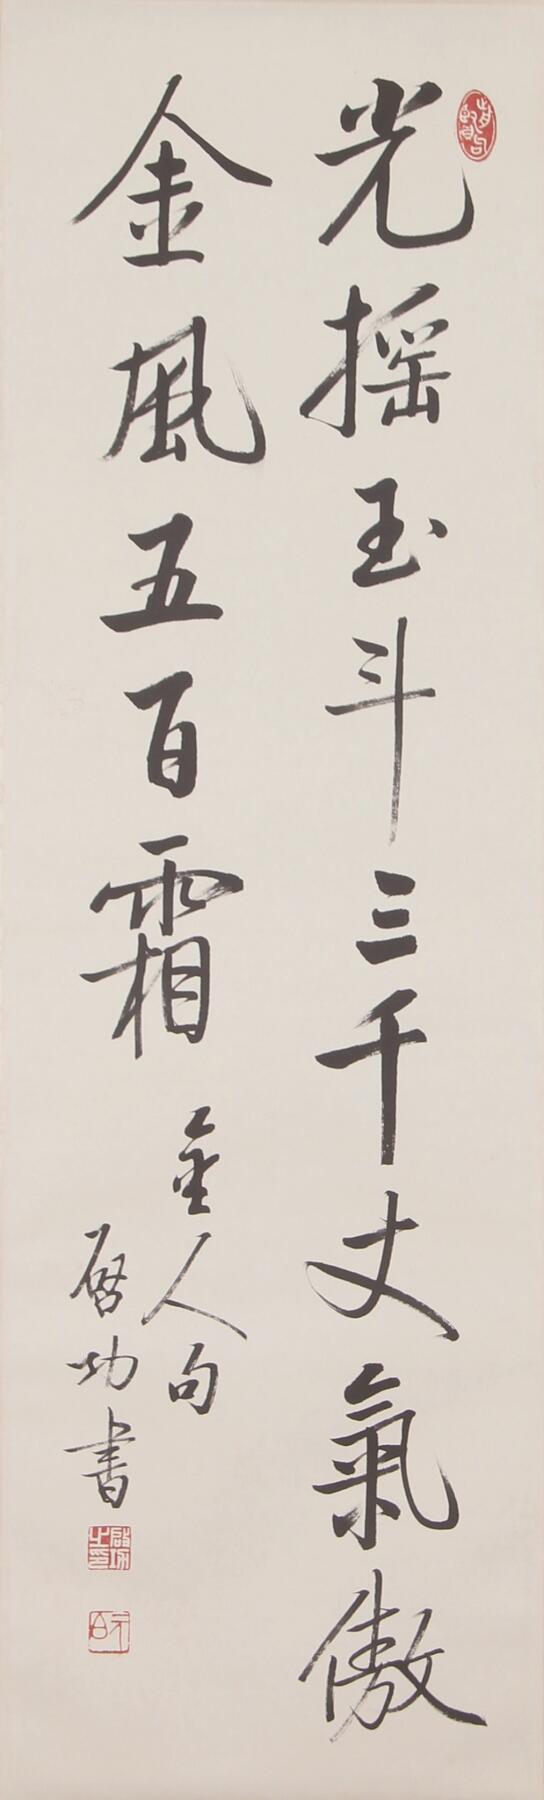 光摇玉斗三千丈氣傲
金風五百霜
金人句
啓功書
啟功之印